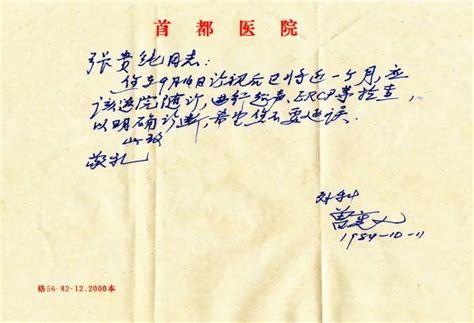 首都医院
张贵纯同志：
您在9月14日诊视后已将近一个月，应
该返院随诊，进行超声、ERCP等检查，
以明确诊断，希望您不要延误。
此致
敬礼
外科
1984-10-11
格56-82-12.2000本